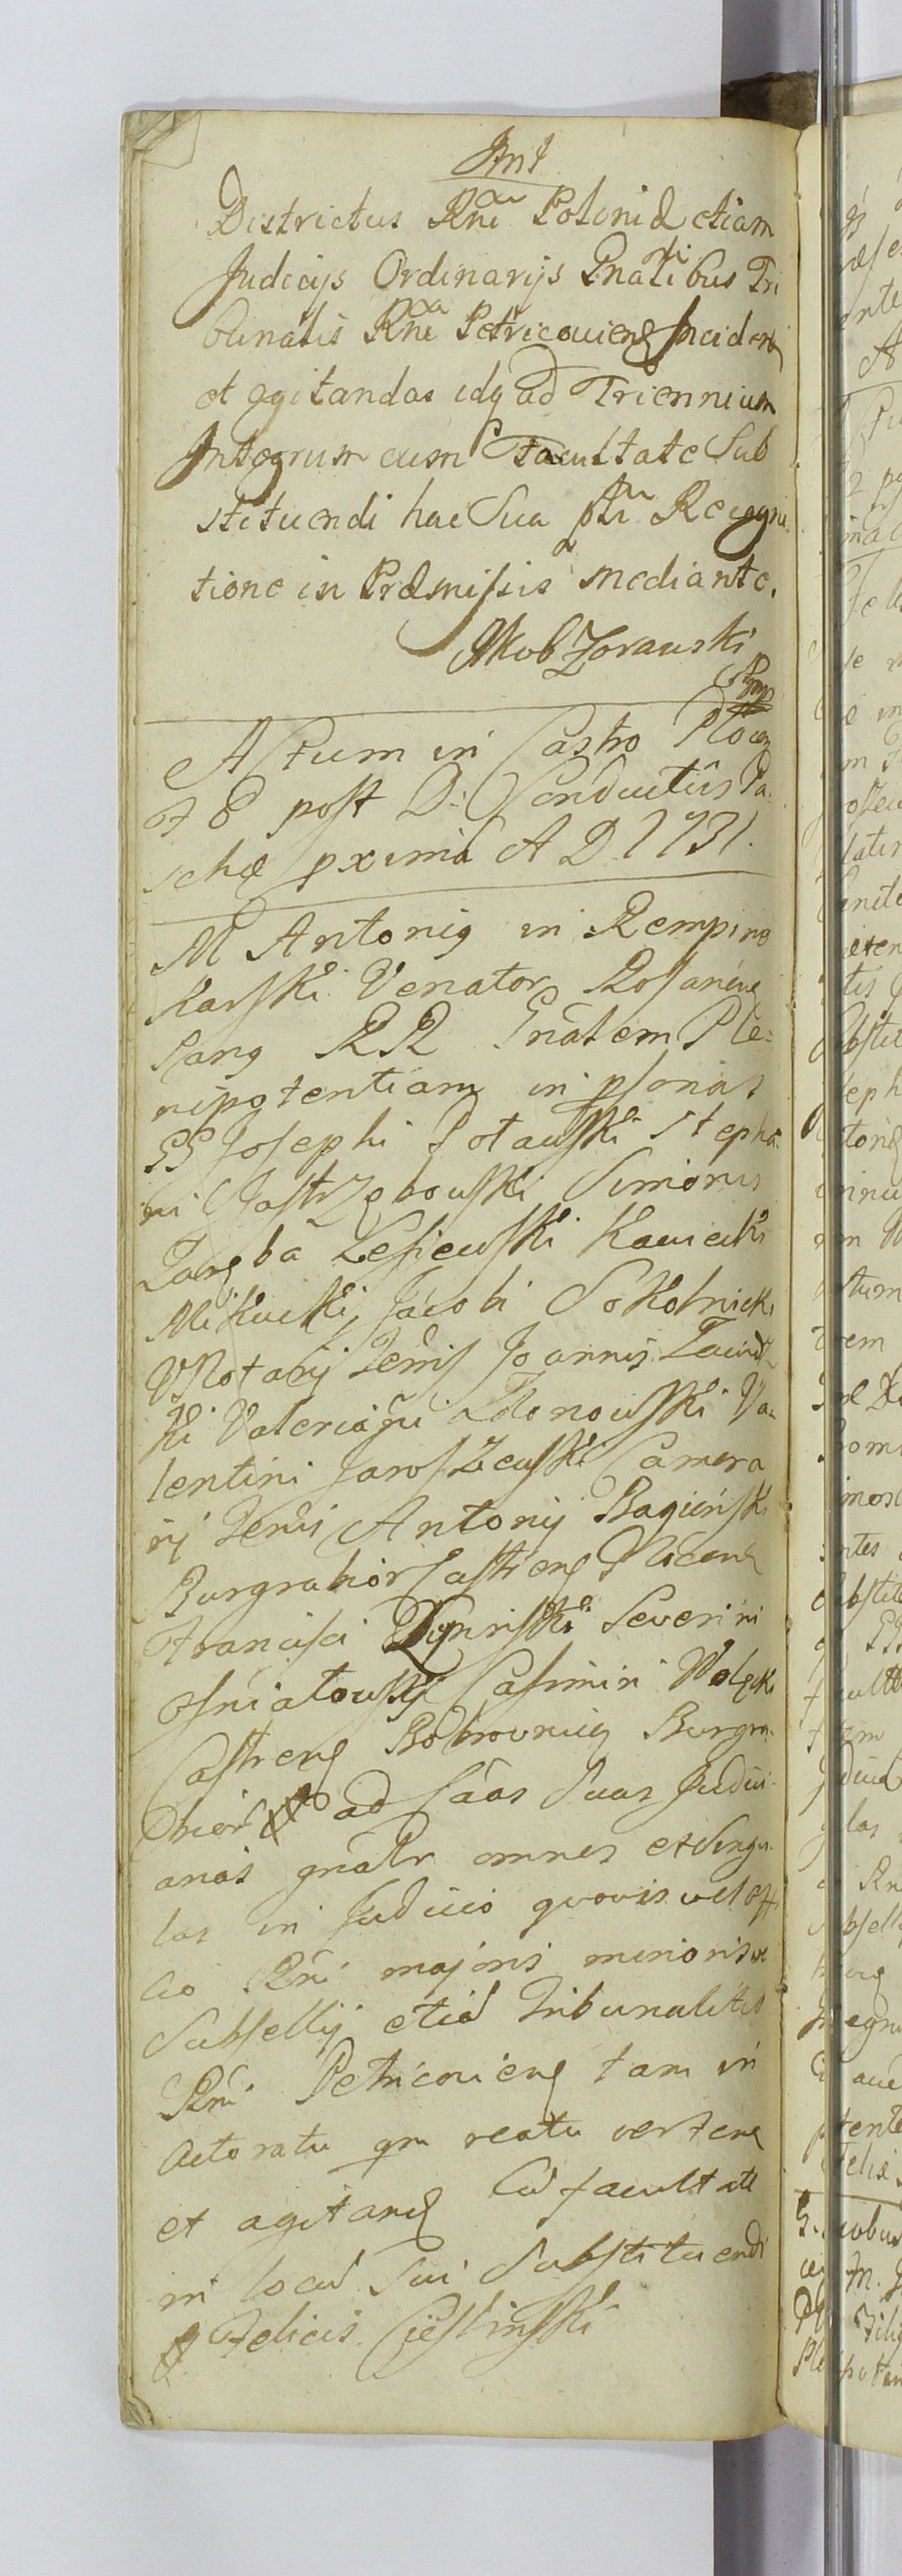 Districtus Rni Poloniæ etiam
Judicijs Ordinarijs Gnalibus Tri
bunalis Rni Petricoviens Inciden
et agitandas idq ad Triennium
Integrum cum Facultate Sub
stituendi hac Sua pñti Recogni
tione in Præmissis mediante.
Jakob Zorawski
Actum in Castro Plocen
F 6 post D: Conductûs Pa
schæ pxima A D 1731.
M Antonig in Rempino
Karski Venator Rosanens
Sang RR Gnâlem Ple=
nipotentiam in psonas
GG Josephi Potawski Stepha
ni Jastrzębowski Simonis
Zaręba Lesiewski Kawiecki
Mikucki Jacobi Sokolnicki
VNotarij Terris Joannis
ki Valeriani Zdonowski Va
lentini Jaroszewski Camera
rij Terris Antonij Bagieński
Burgrabior Castrens Plocens
Francisci Severini
Osniatowski Casimiri Wolęcki
Castrens Bobrovnicę Burgra
bior ad Câas Suas Judici
arias gnâlr omnes et Singu
las in Judicio quovis vel offi
cio Rni majoris minorisve
Subsellij etiã Tribunalitio
Rni Petricoviens tam in
Actoratu qm reatu vertens
et agitand Cũ facultate
in locũ Sui Substituendi
G Felicis Cieslinski